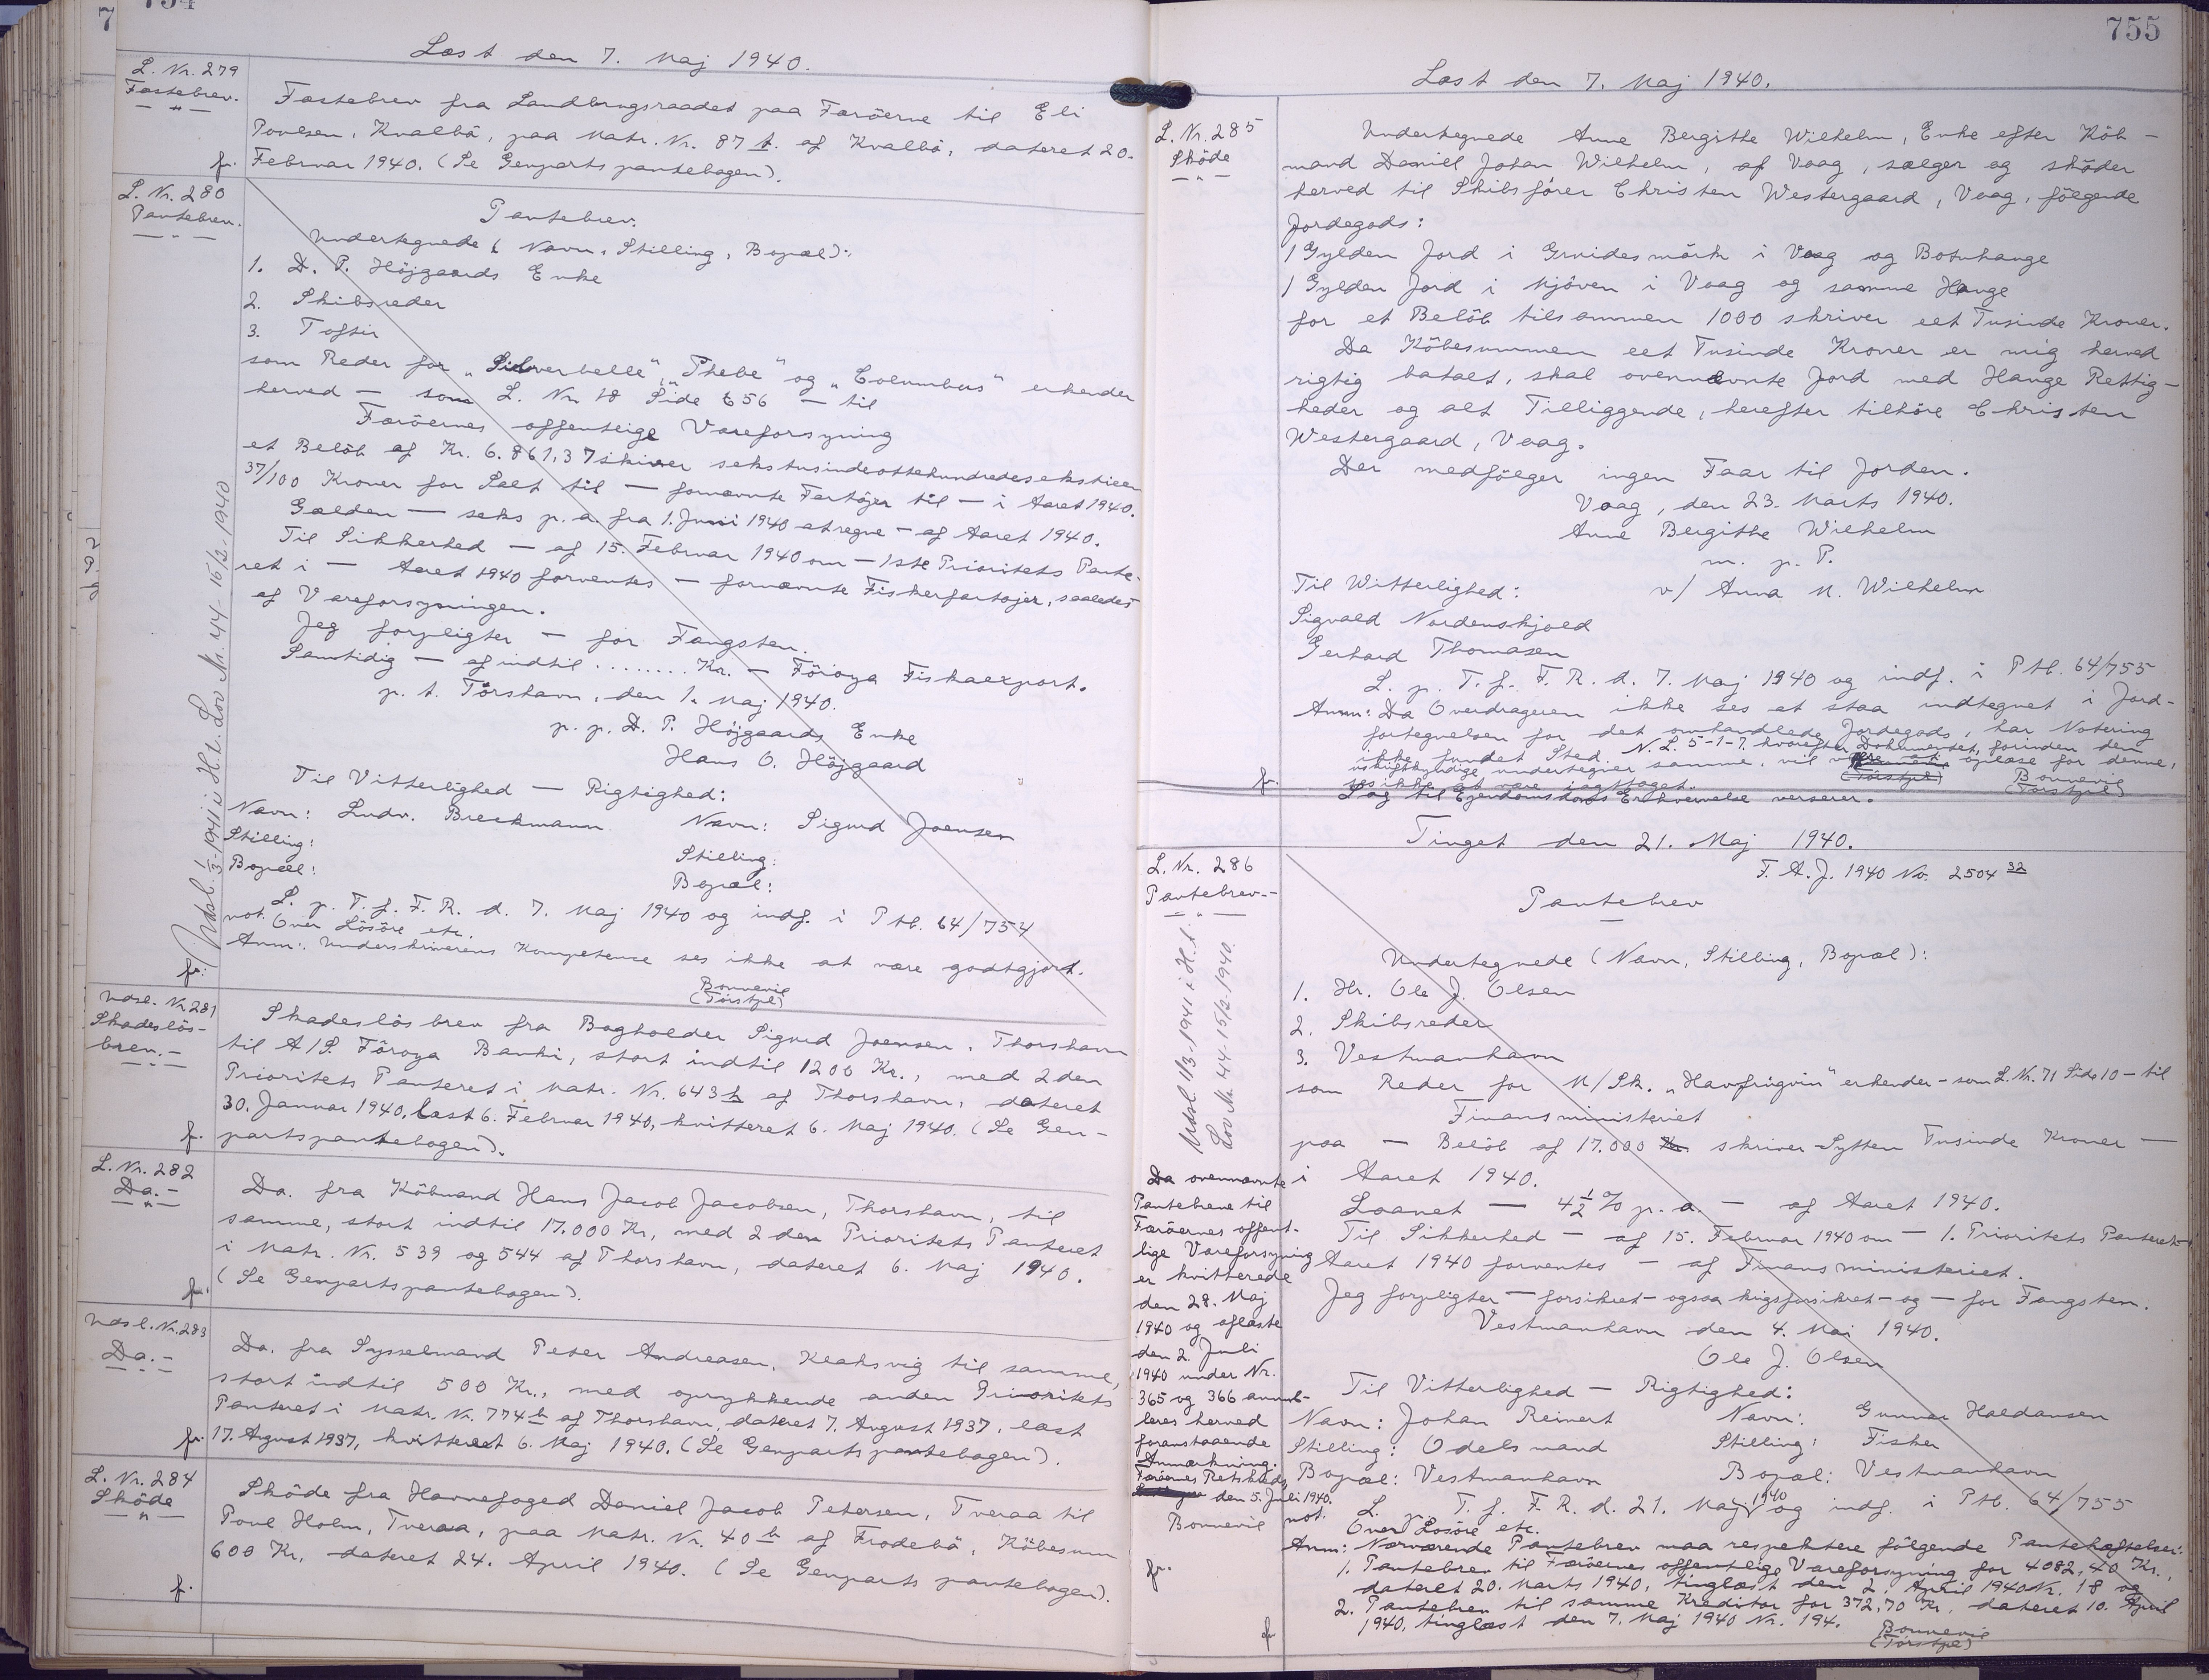 754
Læst den 7. Maj 1940.
L. Nr. 279
Fæstebrev.
Fæstebrev fra Landbrugsraadet paa Færöerne til Eli
Poulsen, Kvalbö, paa Matr. Nr. 87 b. af Kvalbö, dateret 20.
Februar 1940. (Se Genpartspantebogen).
L. Nr. 280
Pantebrev.
Pantebrev.
Undertegnede (Navn, Stilling, Bopæl):
1. D. P. Höjgaards Enke
2. Skibsreder
3. Toftir
som Reder for „Silverbelle“, „Thebe“ og „Columbus“ erkender
herved — som L. Nr. 18 Side 656 — til
Færöernes offentlige Vareforsyning
et Belöb af Kr. 6.861,37 skiver sekstusindeottehundredesekstieen
37/100 Kroner for Salt til — fornævnte Fartöjer til — i Aaret 1940.
Gælden — seks p. a. fra 1. Juni 1940 at regne — af Aaret 1940.
Til Sikkerhed — af 15. Februar 1940 om — 1ste Prioritets Pante-
ret i — Aaret 1940 forventes — fornævnte Fiskerfartöjer, saaledes
af Vareforsyningen.
Jeg forpligter — for Fangsten.
Samtidig — af indtil ........ Kr. — Föroya Fiskaexport.
p. t. Tórshavn, den 1. Maj 1940.
p. p. D. P. Höjgaards Enke
Hans O. Höjgaard
Til Vitterlighed — Rigtighed:
Navn: Ludv. Breckmann Navn: Sigurd Joensen
Stilling: Stilling:
Bopæl: Bopæl:
L. p. T. f. F. R. d. 7. Maj 1940 og indf. i Ptb. 64/754
not. Over Lösöre etc.
Anm: Underskriverens Kompetence ses ikke at være godtgjort.
Bonnevie
(Torstpl)
Udsl. 1/3-1941 i H. t. Lov Nr. 44 - 15/2-1940
Udsl. Nr. 281
Skadeslös-
brev.-
Skadeslösbrev fra Bogholder Sigurd Joensen, Thorshavn
til A/S. Föroya Banki, stort indtil 1200 Kr., med 2den
Prioritets Panteret i Matr. Nr. 643 h af Thorshavn, dateret
30. Januar 1940, læst 6. Februar 1940, kvitteret 6. Maj 1940. (Se Gen-
partspantebogen).
L. Nr. 282
Do.-
Do. fra Köbmand Hans Jacob Jacobsen, Thorshavn, til
samme, stort indtil 17.000 Kr, med 2den Prioritets Panteret
i Matr. Nr. 539 og 544 af Thorshavn, dateret 6. Maj 1940.
(Se Genpartspantebogen).
Udsl. Nr. 283
Do.-
Do. fra Sysselmand Peter Andreasen, Klaksvig til samme,
stort indtil 500 Kr., med oprykkende anden Prioritets
Panteret i Matr. Nr. 774 b af Thorshavn, dateret 7. August 1937, læst
17. August 1937, kvitteret 6. Maj 1940. (Se Genpartspantebogen).
L. Nr. 284
Sköde
Sköde fra Havnefoged Daniel Jacob Petersen, Tveraa til
Poul Holm, Tveraa, paa Matr. Nr. 40 b af Frodebö, Köbesum
600 Kr, dateret 24. April 1940. (Se Genparts pantebogen).
755
Læst den 7. Maj 1940.
L. Nr. 285
Sköde
Undertegnede Anne Bergitte Wilhelm, Enke efter Köb-
mand Daniel Johan Wilhelm, af Vaag, sælger og sköder
herved til Skibsförer Christen Westergaard, Vaag, fölgende
Jordegods:
1 Gylden Jord i Gruidesmörk i Vaag og Botnhauge
1 Gylden Jord i Mjöven i Vaag og samme Hauge
for et Belöb tilsammen 1000 skriver eet Tusinde Kroner.
Da Köbesummen eet Tusinde Kroner er mig herved
rigtig betalt, skal ovennævnte Jord med Hauge Rettig-
heder og alt Tilliggende, herefter tilhöre Christen
Westergaard, Vaag.
Der medfölger ingen Faar til Jorden.
Vaag, den 23. Marts 1940.
Anne Bergitte Wilhelm
m. p. P.
Til Witterlighed: v/ Anna M. Wilhelm
Sigvald Nordenskjold
Gerhard Thomasen
L. p. T. f. F. R. d. 7. Maj 1940 og indf. i Ptb. 64/755
Anm: Da Overdrageren ikke ses at staa indtegnet i Jord-
fortegnelsen for det omhandlede Jordegods, har Notering
ikke fundet Sted. N. L. 5-1-7, hvorefter Dokumentet, forinden den
uskriftkyndige undertegner samme, vil være at oplæse for denne,
ses ikke at være iagttaget. Bonnevie
(Torstpl)
Sag til Ejendomsdoms Erhvervelse verserer.
Tinget den 21. Maj 1940.
L. Nr. 286
Pantebrev-
F. A. J. 1940 No. 2504 32
Pantebrev
Undertegnede (Navn, Stilling, Bopæl):
1. Hr. Ole J. Olsen
2. Skibsreder
3. Vestmanhavn
som Reder for M/Sk. „Havfrúgvin“ erkender — som L. Nr. 71 Side 10 — til
Finansministeriet
paa — Belöb af 17.000 skriver Sytten Tusinde Kroner —
i Aaret 1940.
Laanet — 4 1/2 % p. a. — af Aaret 1940.
Til Sikkerhed — af 15. Februar 1940 om — 1. Prioritets Panteret
Aaret 1940 forventes — af Finansministeriet.
Jeg forpligter — forsikret — ogsaa krigsforsikret — og — for Fangsten.
Vestmanhavn den 4. Mai 1940.
Ole J. Olsen
Til Vitterlighed — Rigtighed:
Navn: Johan Reinert Navn: Gunnar Haldansen
Stilling: Odelsmand Stilling: Fisker
Bopæl: Vestmanhavn Bopæl: Vestmanhavn
L. p. T. f. F. R. d. 21. Maj 1940 og indf. i Ptb. 64/755
not. Over Lösöre etc.
Anm: Nærværende Pantebrev maa respektere fölgende Pantehæftelser:
1. Pantebrev til Færöernes offentlige Vareforsyning for 4082,40 Kr.,
dateret 20. Marts 1940, tinglæst den 2. April 1940 Nr. 18 og
2. Pantebrev til samme Kreditor for 372,70 Kr, dateret 10. April
1940, tinglæst den 7. Maj 1940 Nr. 194.
Bonnevie
(Torstpl)
Udsl 1/3-1941 i H. t.
Lov Nr. 44-15/2-1940.
Da ovennævnte
Pantebreve til
Færöernes offent-
lige Vareforsyning
er kvitterede
den 28. Maj
1940 og aflæste
den 2. Juli
1940 under Nr.
365 og 366 annul-
leres herved
foranstaaende
Anmærkning.
Færöernes Retskreds,
den 5. Juli 1940.
Bonnevie